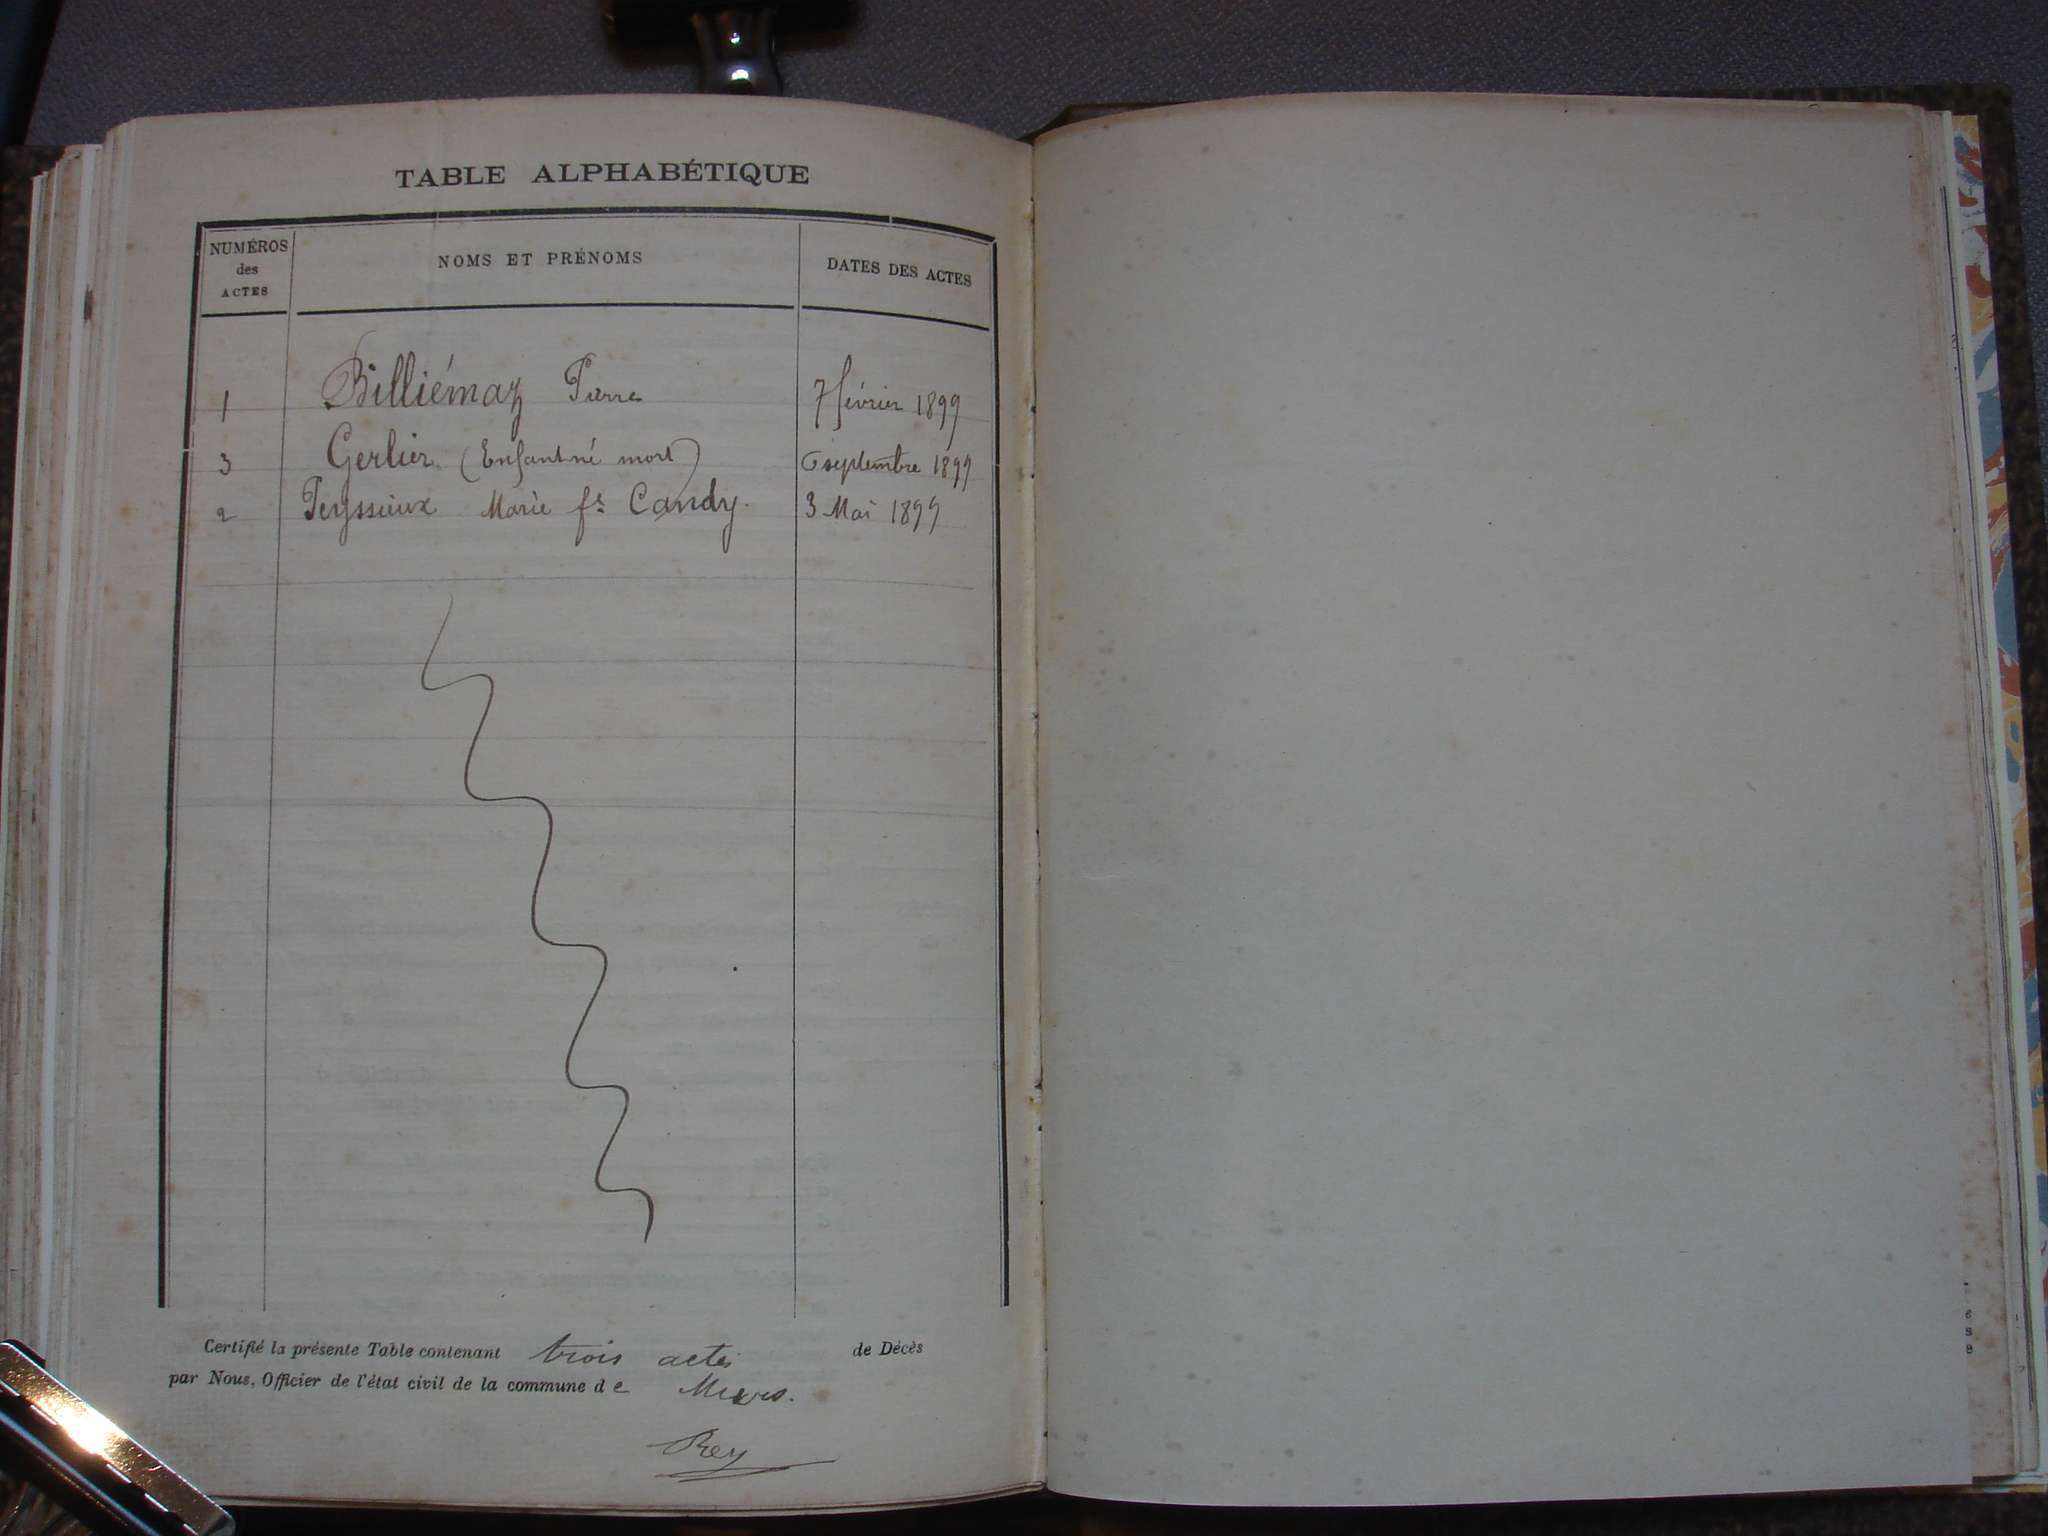 TABLE ALPHABÉTIQUE
NUMÉROS des ACTES
NOMS ET PRÉNOMS
DATES DES ACTES
1 Billiémaz Pierre 7 février 1899
3 Gerlier (Enfant né mort) 6 septembre 1899
2 Peyssieux Marie fe Candy. 3 Mai 1899
Certifié la présente Table contenant trois actes de Décès
par Nous, Officier de l'état civil de la commune de
Rey